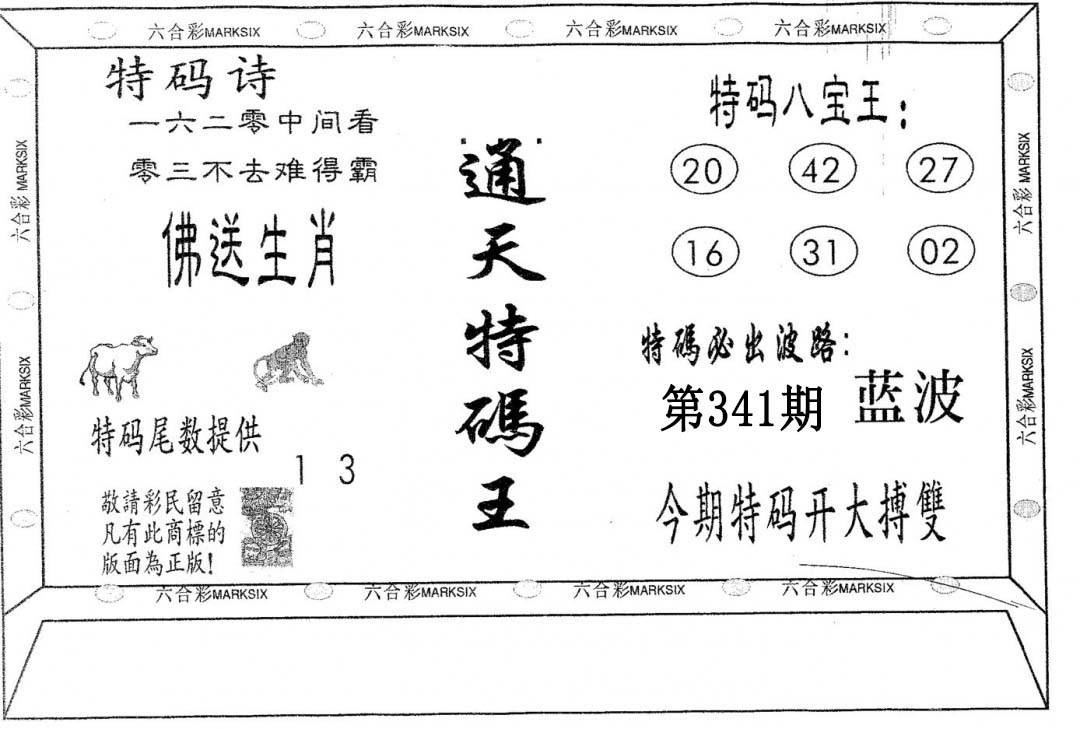 六合彩MARKSIX 六合彩MARKSIX 六合彩MARKSIX 六合彩MARKSIX
特码诗
一六二零中间看
零三不去难得霸
佛送生肖
特码尾数提供
1 3
敬請彩民留意
凡有此商標的
版面為正版!
通天特碼王
特码八宝王:
20 42 27
16 31 02
特碼必出波路:
第341期 蓝波
今期特码开大搏雙
六合彩 MARKSIX
六合彩MARKSIX
六合彩 MARKSIX
六合彩MARKSIX
六合彩MARKSIX 六合彩MARKSIX 六合彩MARKSIX 六合彩MARKSIX